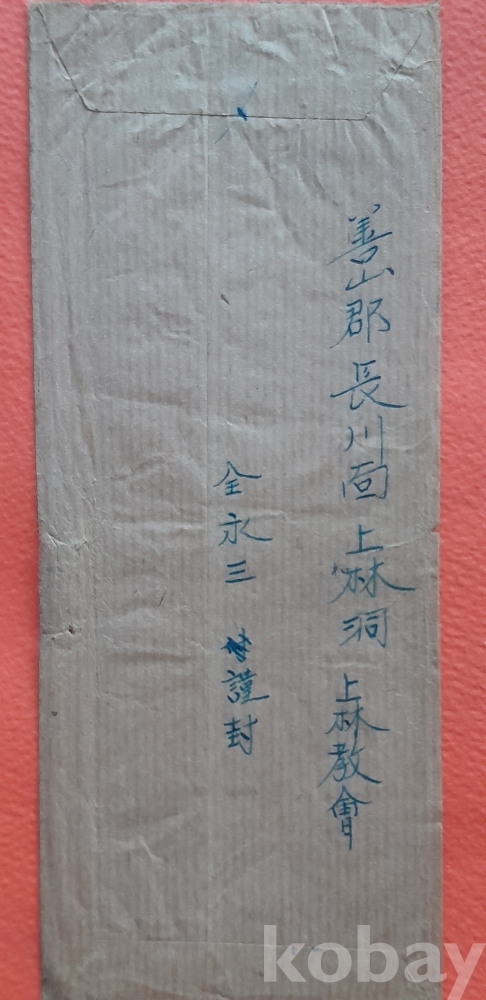 善山郡 長川面 上林洞 上林教會
全永三 謹封
kobay